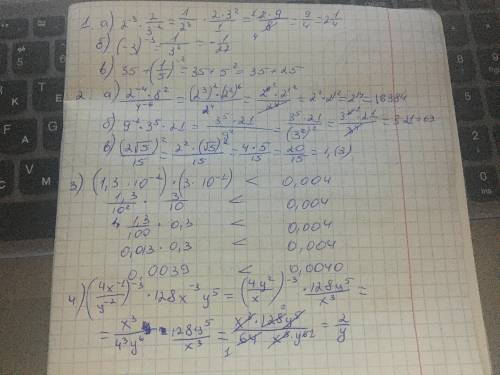 1. а) 2⁻³ · 2/3⁻² = 1/2³ · 2·3²/1 = 2·9/8 = 9/4 = 2 1/4
б) (-3)⁻³ = 1/3³ = -1/27
в) 35 · (1/5)⁻² = 35 + 5² = 35 + 25
2. а) 2⁻⁴ · 8² / 4⁻⁶
б) 9⁻² · 3⁵ · 21 = 3⁵ · 21 / 9² = 3⁵ · 21 / (3²)² = 3⁵ · 21 / 3⁴ = 3 · 21 = 63
в) (2√5)² / 15 = 2² · (√5)² / 15 = 4 · 5 / 15 = 20/15 = 1,(3)
3) (1,3 · 10⁻²) · (3 · 10⁻¹) < 0,004
1,3/10² · 3/10 < 0,004
1,3/100 · 0,3 < 0,004
0,013 · 0,3 < 0,004
0,0039 < 0,0040
4) (4x⁻¹/y⁻²)⁻³ · 128x⁻³ y⁵ = (4y²/x)⁻³ · 128y⁵/x³ =
= x³/4³y⁶ · 128y⁵/x³ = x³ · 128y⁵ / 64 x³ y⁶ = 2/y